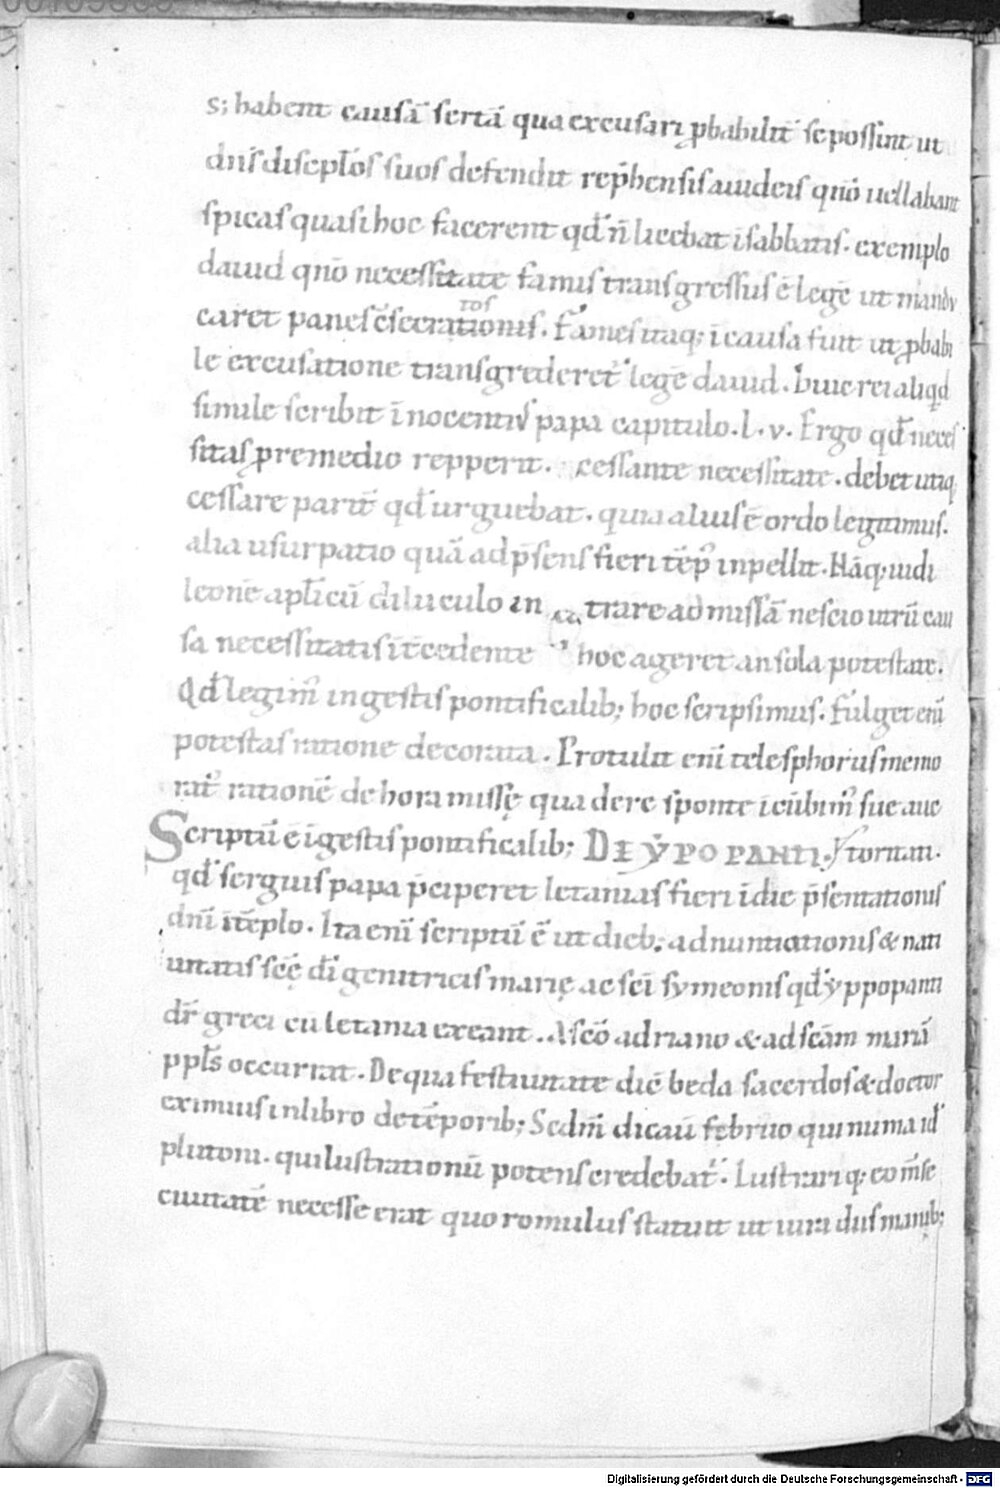 s; habent causā sertā qua excusari ꝓbabilit̄ se possint ut
dn̄s discipl̄os suos defendit rep̄hensis a iudeis qn̄o uellabant
spicas quasi hoc facerent qd̄ n̄ licebat ī sabbatis. exemplo
dauid qn̄o necessitate famis transgressus ē legē ut mandu
tos
caret panes ↄsecrationis. Fames itaq; ī causa fuit ut ꝓbabi
le excusatione transgrederet̄ legē dauid. Huic rei aliqd
simile scribit īnocentius papa capitulo. L.v. Ergo qd̄ neces
sitas ꝓ remedio repperit. cessante necessitate. debet utiq
cessare parit̄ qd̄ urguebat. quia alius ē ordo legitimus.
alia usurpatio quā ad p̄sens fieri tēp̄ inpellit. Nāq; uidi
leonē apl̄icū diluculo in trare ad missā nescio utrū cau
sa necessitatis īt̄cedente hoc ageret an sola potestate.
Qd̄ legim̄ in gestis pontificalib; hoc scripsimus. Fulget eni
potestas ratione decorata. Protulit eni telesphorus memo
rat̄ rationē de hora missę qua dere sponte
Scriptū ē ī gestis pontificalib; DE YPOPANTI.
qd̄ sergius papa p̄ciperet letanias fieri ī die p̄sentationis
dn̄i ī tēplo. Ita eni scriptū ē ut dieb; adnuntiationis & nati
uitatis scē dī genitricis marię ac scī symeonis qd̄ yppopanti
dr̄ greci cū letania exeant. A scō adriano & ad scām mariā
ppl̄s occurrat. De qua festiuitate dic̄ beda sacerdos & doctor
eximius in libro de tēporib; Scdm̄ dicaū februo qui numa id
plutoni. qui lustrationū potens credebat̄. Lustrariq; eo m̄se
ciuitatē necesse erat quo romulus statuit ut iura diis manib;
Digitalisierung gefördert durch die Deutsche Forschungsgemeinschaft - DFG